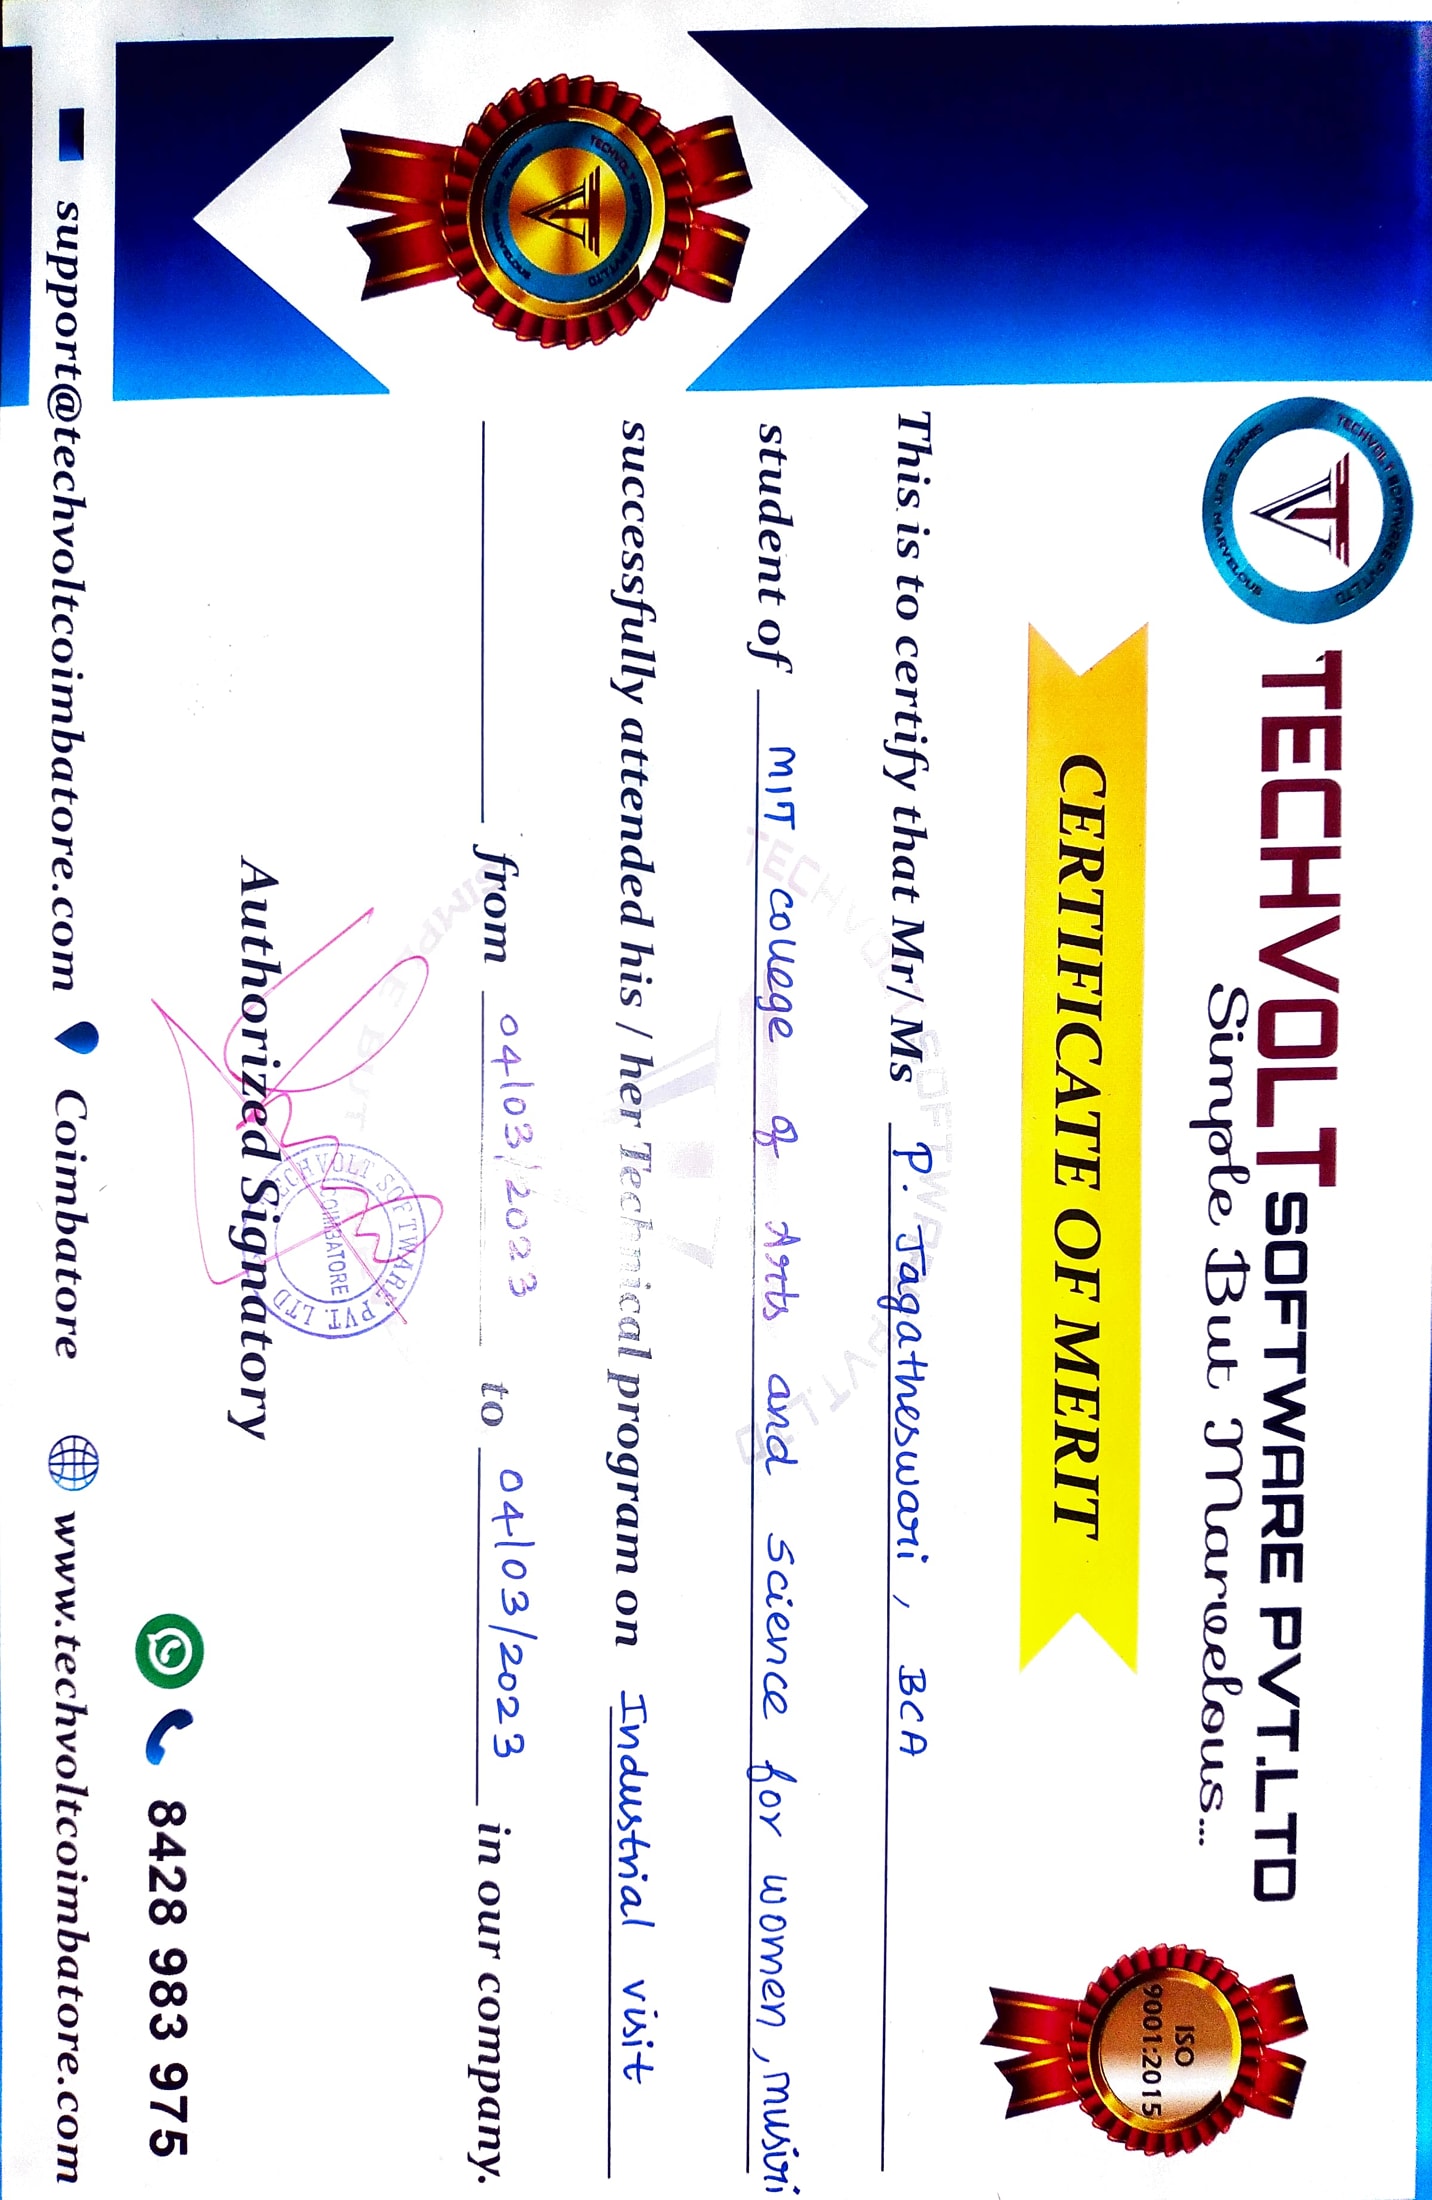 TECHVOLT SOFTWARE PVT.LTD
SIMPLE BUT MARVELOUS
TECHVOLT SOFTWARE PVT.LTD
Simple But Marvelous...
ISO
9001:2015
CERTIFICATE OF MERIT
This is to certify that Mr/ Ms P. Jagatheswari, BCA
student of MIT College of Arts and Science for women, musiri
successfully attended his / her Technical program on Industrial visit
from 04/03/2023 to 04/03/2023 in our company.
TECHVOLT SOFTWARE PVT.LTD
SIMPLE BUT MARVELOUS
TECHVOLT SOFTWARE PVT.LTD
SIMPLE BUT
TECHVOLT SOFTWARE PVT. LTD
COIMBATORE
Authorized Signatory
8428 983 975
support@techvoltcoimbatore.com Coimbatore www.techvoltcoimbatore.com